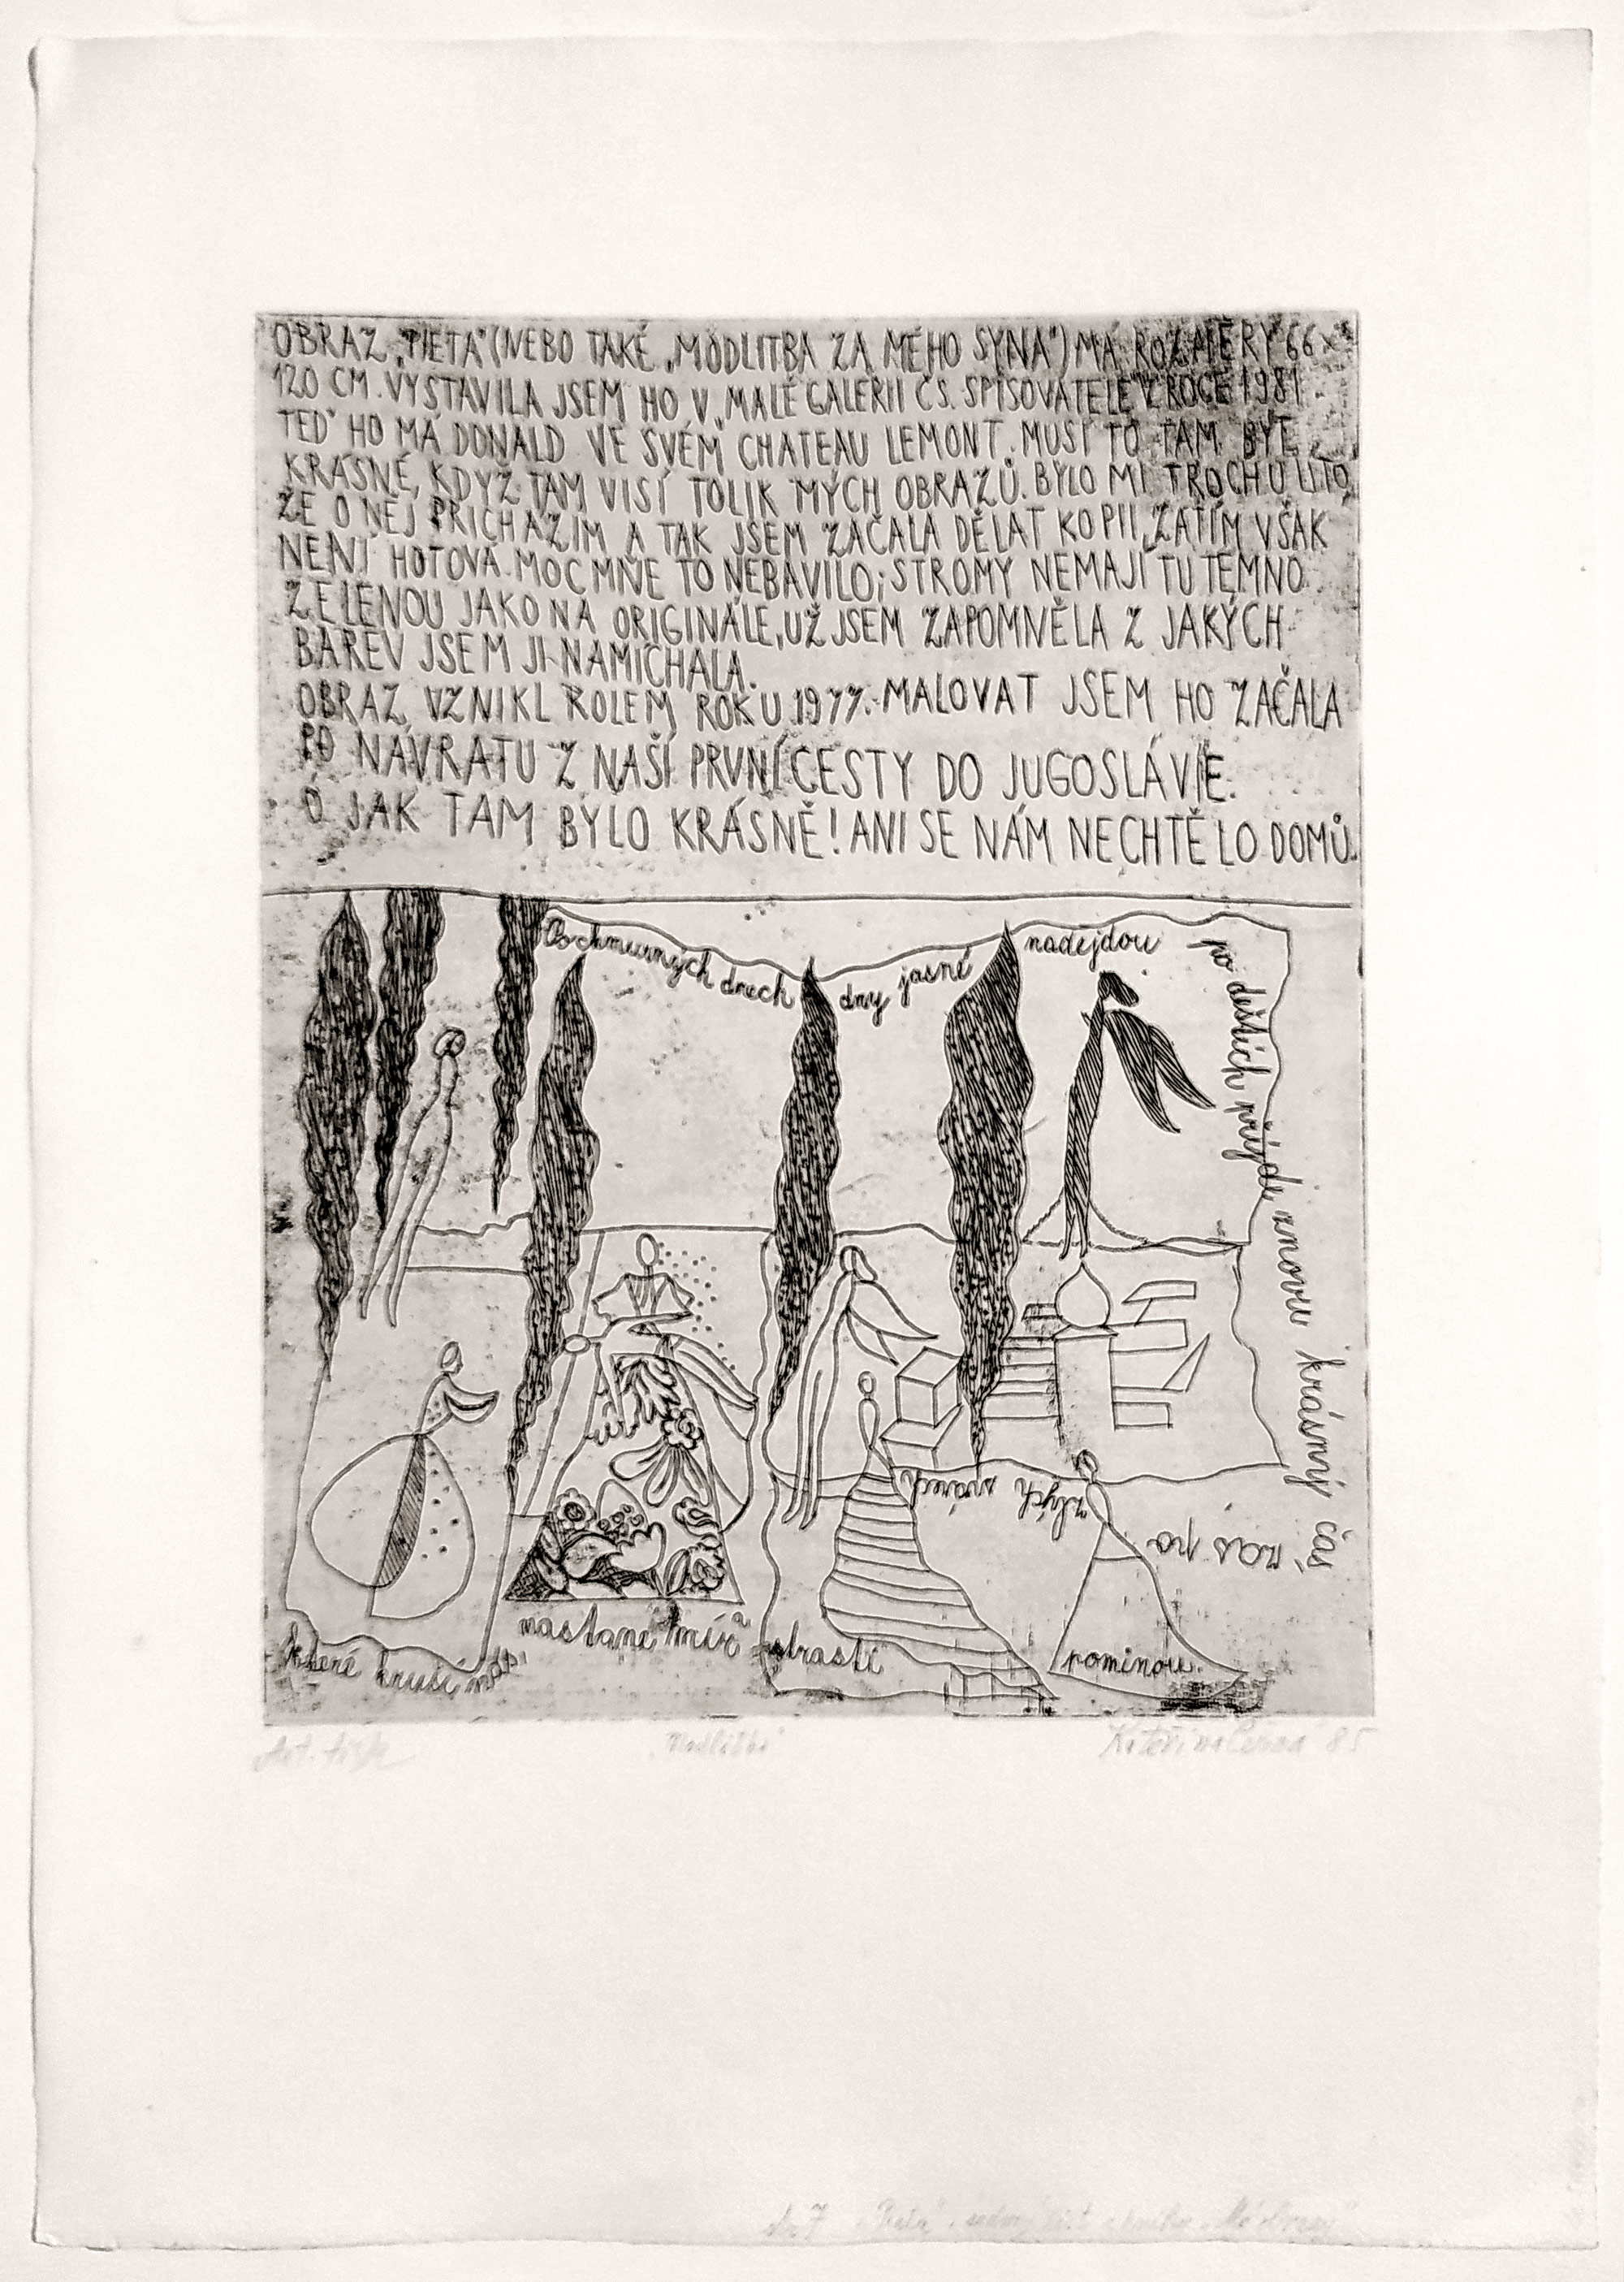 OBRAZ „PIETA“ (NEBO TAKÉ „MODLITBA ZA MÉHO SYNA“) MÁ ROZMĚRY 66 x
120 CM. VYSTAVILA JSEM HO V „MALÉ GALERII ČS. SPISOVATELE“ V ROCE 1981.
TEĎ HO MÁ DONALD VE SVÉM CHATEAU LEMONT. MUSÍ TO TAM BÝT
KRÁSNÉ, KDYŽ TAM VISÍ TOLIK MÝCH OBRAZŮ. BYLO MI TROCHU LÍTO,
ŽE O NĚJ PŘICHÁZÍM A TAK JSEM ZAČALA DĚLAT KOPII, ZATÍM VŠAK
NENÍ HOTOVÁ. MOC MNE TO NEBAVILO; STROMY NEMAJÍ TU TEMNO
ZELENOU JAKO NA ORIGINÁLE, UŽ JSEM ZAPOMNĚLA Z JAKÝCH
BAREV JSEM JI NAMÍCHALA.
OBRAZ VZNIKL KOLEM ROKU 1977. MALOVAT JSEM HO ZAČALA
PO NÁVRATU Z NAŠÍ PRVNÍ CESTY DO JUGOSLÁVIE.
Ó JAK TAM BYLO KRÁSNĚ! ANI SE NÁM NECHTĚLO DOMŮ.
Po chmurných dnech dny jasné nadejdou
po deštích přijde znovu krásný čas
zas po zlých svárech
nastane mír a strasti
které kruší nás,
pominou.
Aut. tisk „Modlitba“ Kateřina Černá 85